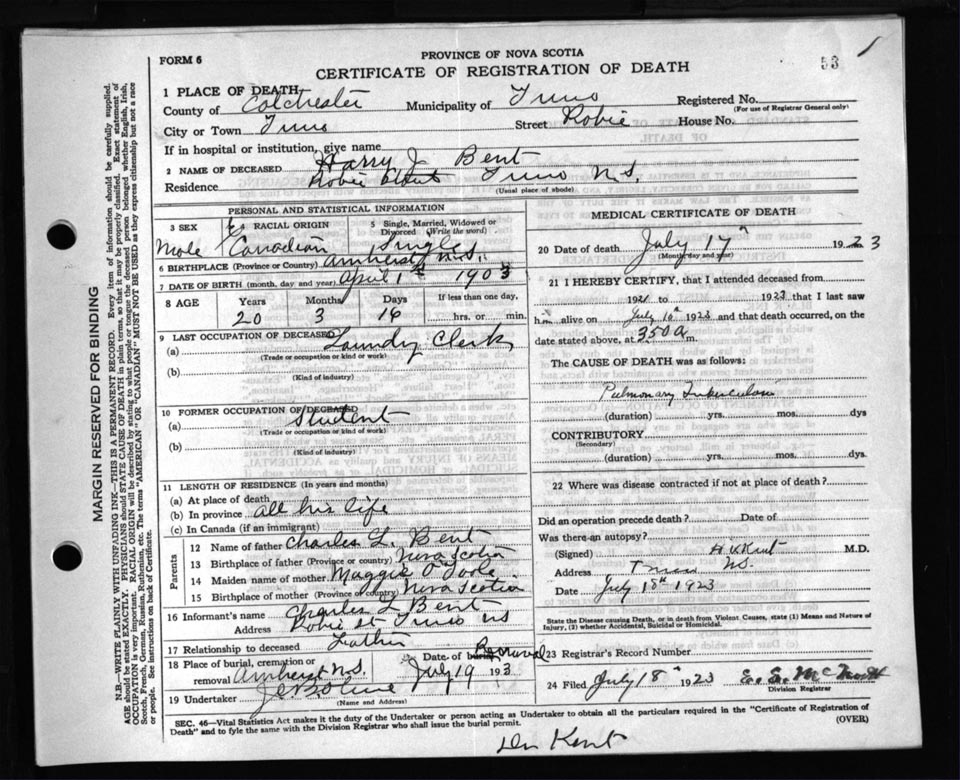 FORM 6
PROVINCE OF NOVA SCOTIA
53
CERTIFICATE OF REGISTRATION OF DEATH
1 PLACE OF DEATH
County of Colchester Municipality of Truro Registered No.
(For use of Registrar General only)
City or Town Truro Street Robie House No.
If in hospital or institution, give name
2 NAME OF DECEASED Harry J. Bent
Residence Robie Street Truro N.S.
(Usual place of abode)
PERSONAL AND STATISTICAL INFORMATION
3 SEX Male
4 RACIAL ORIGIN Canadian
5 Single, Married, Widowed or Divorced (Write the word) Single
6 BIRTHPLACE (Province or Country) Amherst N.S.
7 DATE OF BIRTH (month, day and year) April 1st 1903
8 AGE Years Months Days If less than one day,
20 3 16 hrs. or min.
9 LAST OCCUPATION OF DECEASED
(a) Laundry Clerk
(Trade or occupation or kind or work)
(b)
(Kind of industry)
10 FORMER OCCUPATION OF DECEASED
(a) Student
(Trade or occupation or kind of work)
(b)
(Kind of industry)
11 LENGTH OF RESIDENCE (In years and months)
(a) At place of death
(b) In province all his life
(c) In Canada (if an immigrant)
Parents
12 Name of father Charles L. Bent
13 Birthplace of father (Province or country) Nova Scotia
14 Maiden name of mother Maggie O'Toole
15 Birthplace of mother (Province or country) Nova Scotia
16 Informant's name Charles L Bent
Address Robie St Truro NS
17 Relationship to deceased Father
18 Place of burial, cremation or removal Amherst N.S. Date of burial Removal July 19 1923
19 Undertaker
(Name and Address)
MEDICAL CERTIFICATE OF DEATH
20 Date of death July 17th 1923
(Month, day and year)
21 I HEREBY CERTIFY, that I attended deceased from
1921 to 1923 that I last saw
him alive on July 10th 1923 and that death occurred, on
date stated above, at 350 a m.
The CAUSE OF DEATH was as follows:
Pulmonary Tuberculosis
(duration) yrs. mos. dys
CONTRIBUTORY
(Secondary)
(duration) yrs. mos. dys
22 Where was disease contracted if not at place of death?
Did an operation precede death? Date of
Was there an autopsy?
(Signed) H. V. Kent M.D.
Address Truro NS.
Date July 18th 1923
State the Disease causing Death, or in death from Violent Causes, state (1) Means and Nature of Injury, (2) whether Accidental, Suicidal or Homicidal.
23 Registrar's Record Number
24 Filed July 18th 1923
Division Registrar
SEC. 46—Vital Statistics Act makes it the duty of the Undertaker or person acting as Undertaker to obtain all the particulars required in the "Certificate of Registration of
Death" and to fyle the same with the Division Registrar who shall issue the burial permit. (OVER)
Dr Kent
MARGIN RESERVED FOR BINDING
N.B.—WRITE PLAINLY WITH UNFADING INK—THIS IS A PERMANENT RECORD. Every item of information should be carefully supplied.
AGE should be stated EXACTLY. PHYSICIANS should STATE CAUSE OF DEATH in plain terms, so that it may be properly classified. Exact statement of
OCCUPATION is very important. RACIAL ORIGIN will be described by stating to what people or tongue the deceased person belonged whether English, Irish,
Scotch, French, German, Russian, Ruthenian, etc. The terms "AMERICAN" OR "CANADIAN" MUST NOT BE USED as they express citizenship but not a race
or people. See instructions on back of Certificate.